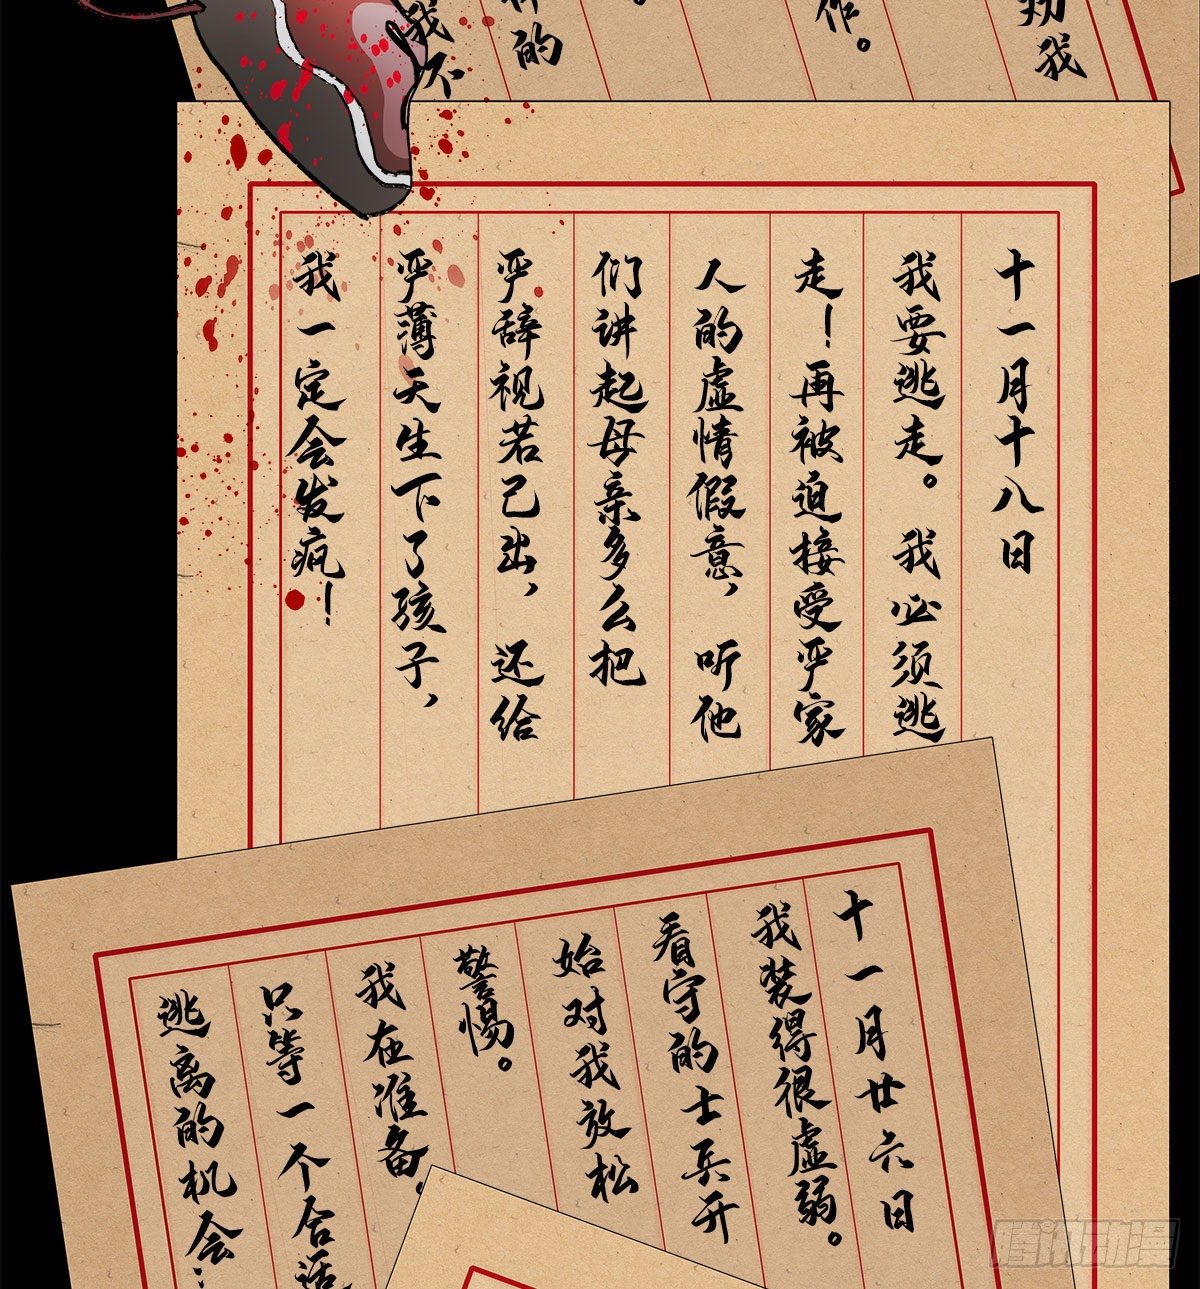 劝我
作。
样的
我不
十一月十八日
我要逃走。我必须逃
走！再被迫接受严家
人的虚情假意，听他
们讲起母亲多么把
严辞视若己出，还给
严薄天生下了孩子，
我一定会发疯！
十一月廿六日
我装得很虚弱。
看守的士兵开
始对我放松
警惕。
我在准备，
只等一个合适
逃离的机会…
腾讯动漫